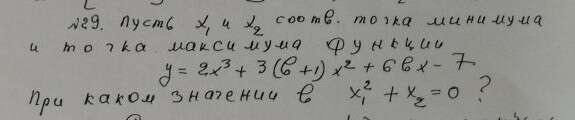 №29. Пусть x₁ и x₂ соотв. точка минимума
и точка максимума функции
y = 2x³ + 3(в+1)x² + 6вx - 7
При каком значении в x₁² + x₂ = 0 ?